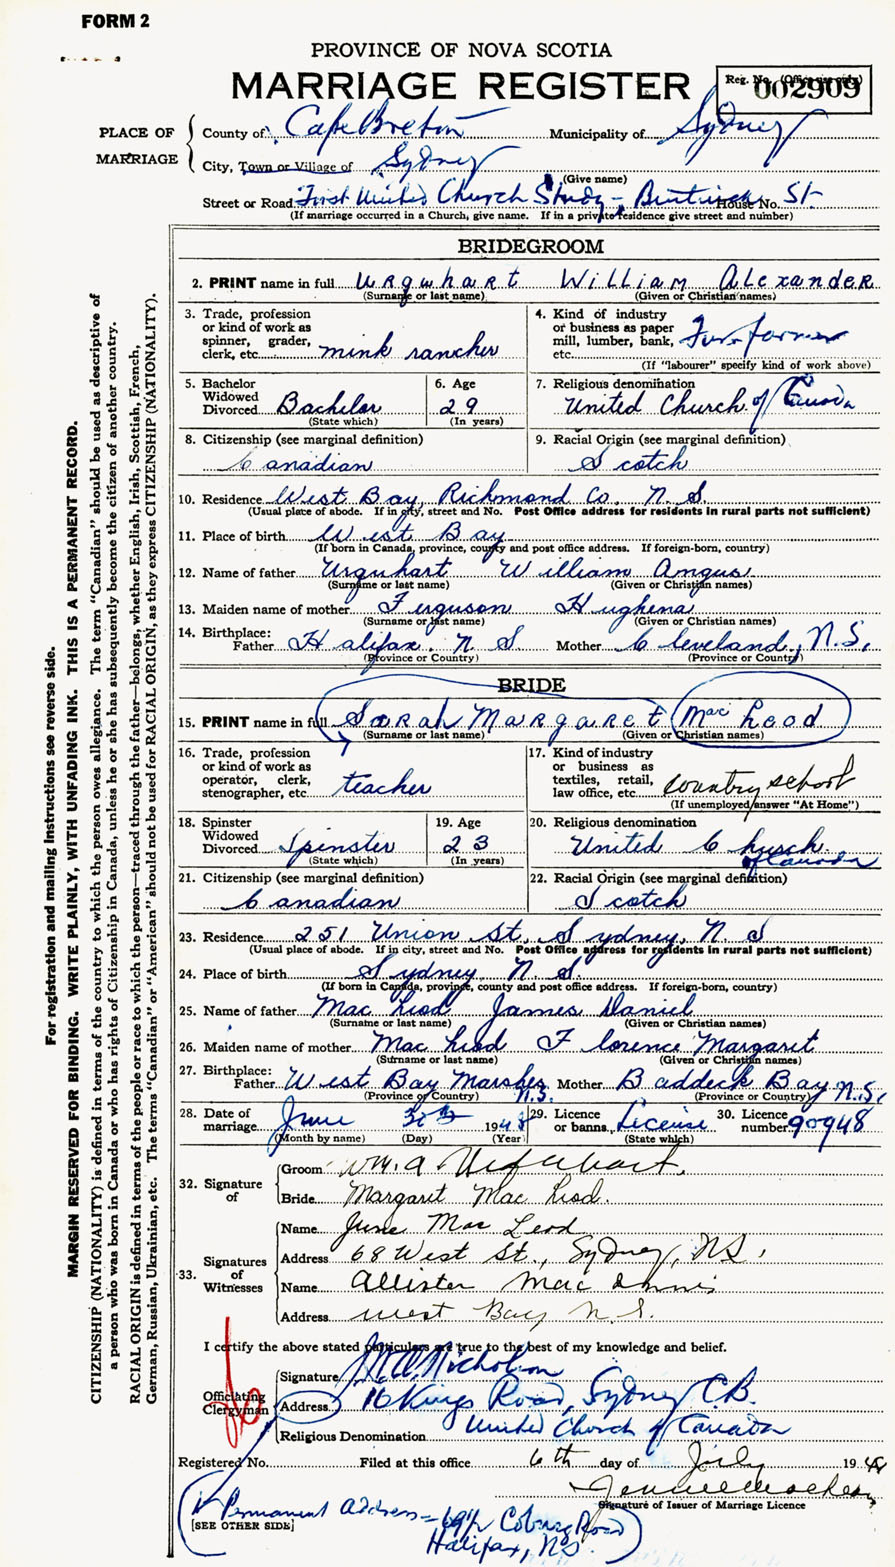 FORM 2
PROVINCE OF NOVA SCOTIA
MARRIAGE REGISTER
Reg. No. (Office use only)
002909
PLACE OF MARRIAGE
County of Cape Breton Municipality of Sydney
City, Town or Village of Sydney
(Give name)
Street or Road First United Church Study - Bentinck St House No.
(If marriage occurred in a Church, give name. If in a private residence give street and number)
BRIDEGROOM
2. PRINT name in full Urquhart William Alexander
(Surname or last name) (Given or Christian names)
3. Trade, profession or kind of work as spinner, grader, clerk, etc. mink rancher
4. Kind of industry or business as paper mill, lumber, bank, etc. Fur farmer
(If "labourer" specify kind of work above)
5. Bachelor Widowed Divorced Bachelor
(State which)
6. Age 29
(In years)
7. Religious denomination United Church of Canada
8. Citizenship (see marginal definition) Canadian
9. Racial Origin (see marginal definition) Scotch
10. Residence West Bay, Richmond Co. N. S.
(Usual place of abode. If in city, street and No. Post Office address for residents in rural parts not sufficient)
11. Place of birth West Bay
(If born in Canada, province, county and post office address. If foreign-born, country)
12. Name of father Urquhart William Angus
(Surname or last name) (Given or Christian names)
13. Maiden name of mother Ferguson Hughena
(Surname or last name) (Given or Christian names)
14. Birthplace: Father Halifax. N. S Mother Cleveland, N.S.
(Province or Country) (Province or Country)
BRIDE
15. PRINT name in full Sarah Margaret MacLeod
(Surname or last name) (Given or Christian names)
16. Trade, profession or kind of work as operator, clerk, stenographer, etc. teacher
17. Kind of industry or business as textiles, retail, law office, etc. country school
(If unemployed answer "At Home")
18. Spinster Widowed Divorced Spinster
(State which)
19. Age 23
(In years)
20. Religious denomination United Church of Canada
21. Citizenship (see marginal definition) Canadian
22. Racial Origin (see marginal definition) Scotch
23. Residence 251 Union St. Sydney, N. S
(Usual place of abode. If in city, street and No. Post Office address for residents in rural parts not sufficient)
24. Place of birth Sydney N. S.
(If born in Canada, province, county and post office address. If foreign-born, country)
25. Name of father MacLeod James Daniel
(Surname or last name) (Given or Christian names)
26. Maiden name of mother MacLeod Florence Margaret
(Surname or last name) (Given or Christian names)
27. Birthplace: Father West Bay Marshes N.S. Mother Baddeck Bay N.S.
(Province or Country) (Province or Country)
28. Date of marriage June 30th 1948
(Month by name) (Day) (Year)
29. Licence or banns License
(State which)
30. Licence number 90948
32. Signature of
Groom Wm. A. Urquhart.
Bride Margaret MacLeod.
33. Signatures of Witnesses
Name June MacLeod
Address 68 West St., Sydney, N.S.
Name Allister Mac Innis
Address West Bay N. S.
I certify the above stated particulars are true to the best of my knowledge and belief.
Officiating Clergyman
Signature Nicholson
Address 16 Kings Road, Sydney C.B.
Religious Denomination United Church of Canada
Registered No. Filed at this office 6th day of July 1948
Signature of Issuer of Marriage Licence
Permanent Address = 69½ Coburg Road
Halifax, N.S.
[SEE OTHER SIDE]
For registration and mailing instructions see reverse side.
MARGIN RESERVED FOR BINDING. WRITE PLAINLY, WITH UNFADING INK. THIS IS A PERMANENT RECORD.
CITIZENSHIP (NATIONALITY) is defined in terms of the country to which the person owes allegiance. The term "Canadian" should be used as descriptive of
a person who was born in Canada or who has rights of Citizenship in Canada, unless he or she has subsequently become the citizen of another country.
RACIAL ORIGIN is defined in terms of the people or race to which the person—traced through the father—belongs, whether English, Irish, Scottish, French,
German, Russian, Ukrainian, etc. The terms "Canadian" or "American" should not be used for RACIAL ORIGIN, as they express CITIZENSHIP (NATIONALITY).